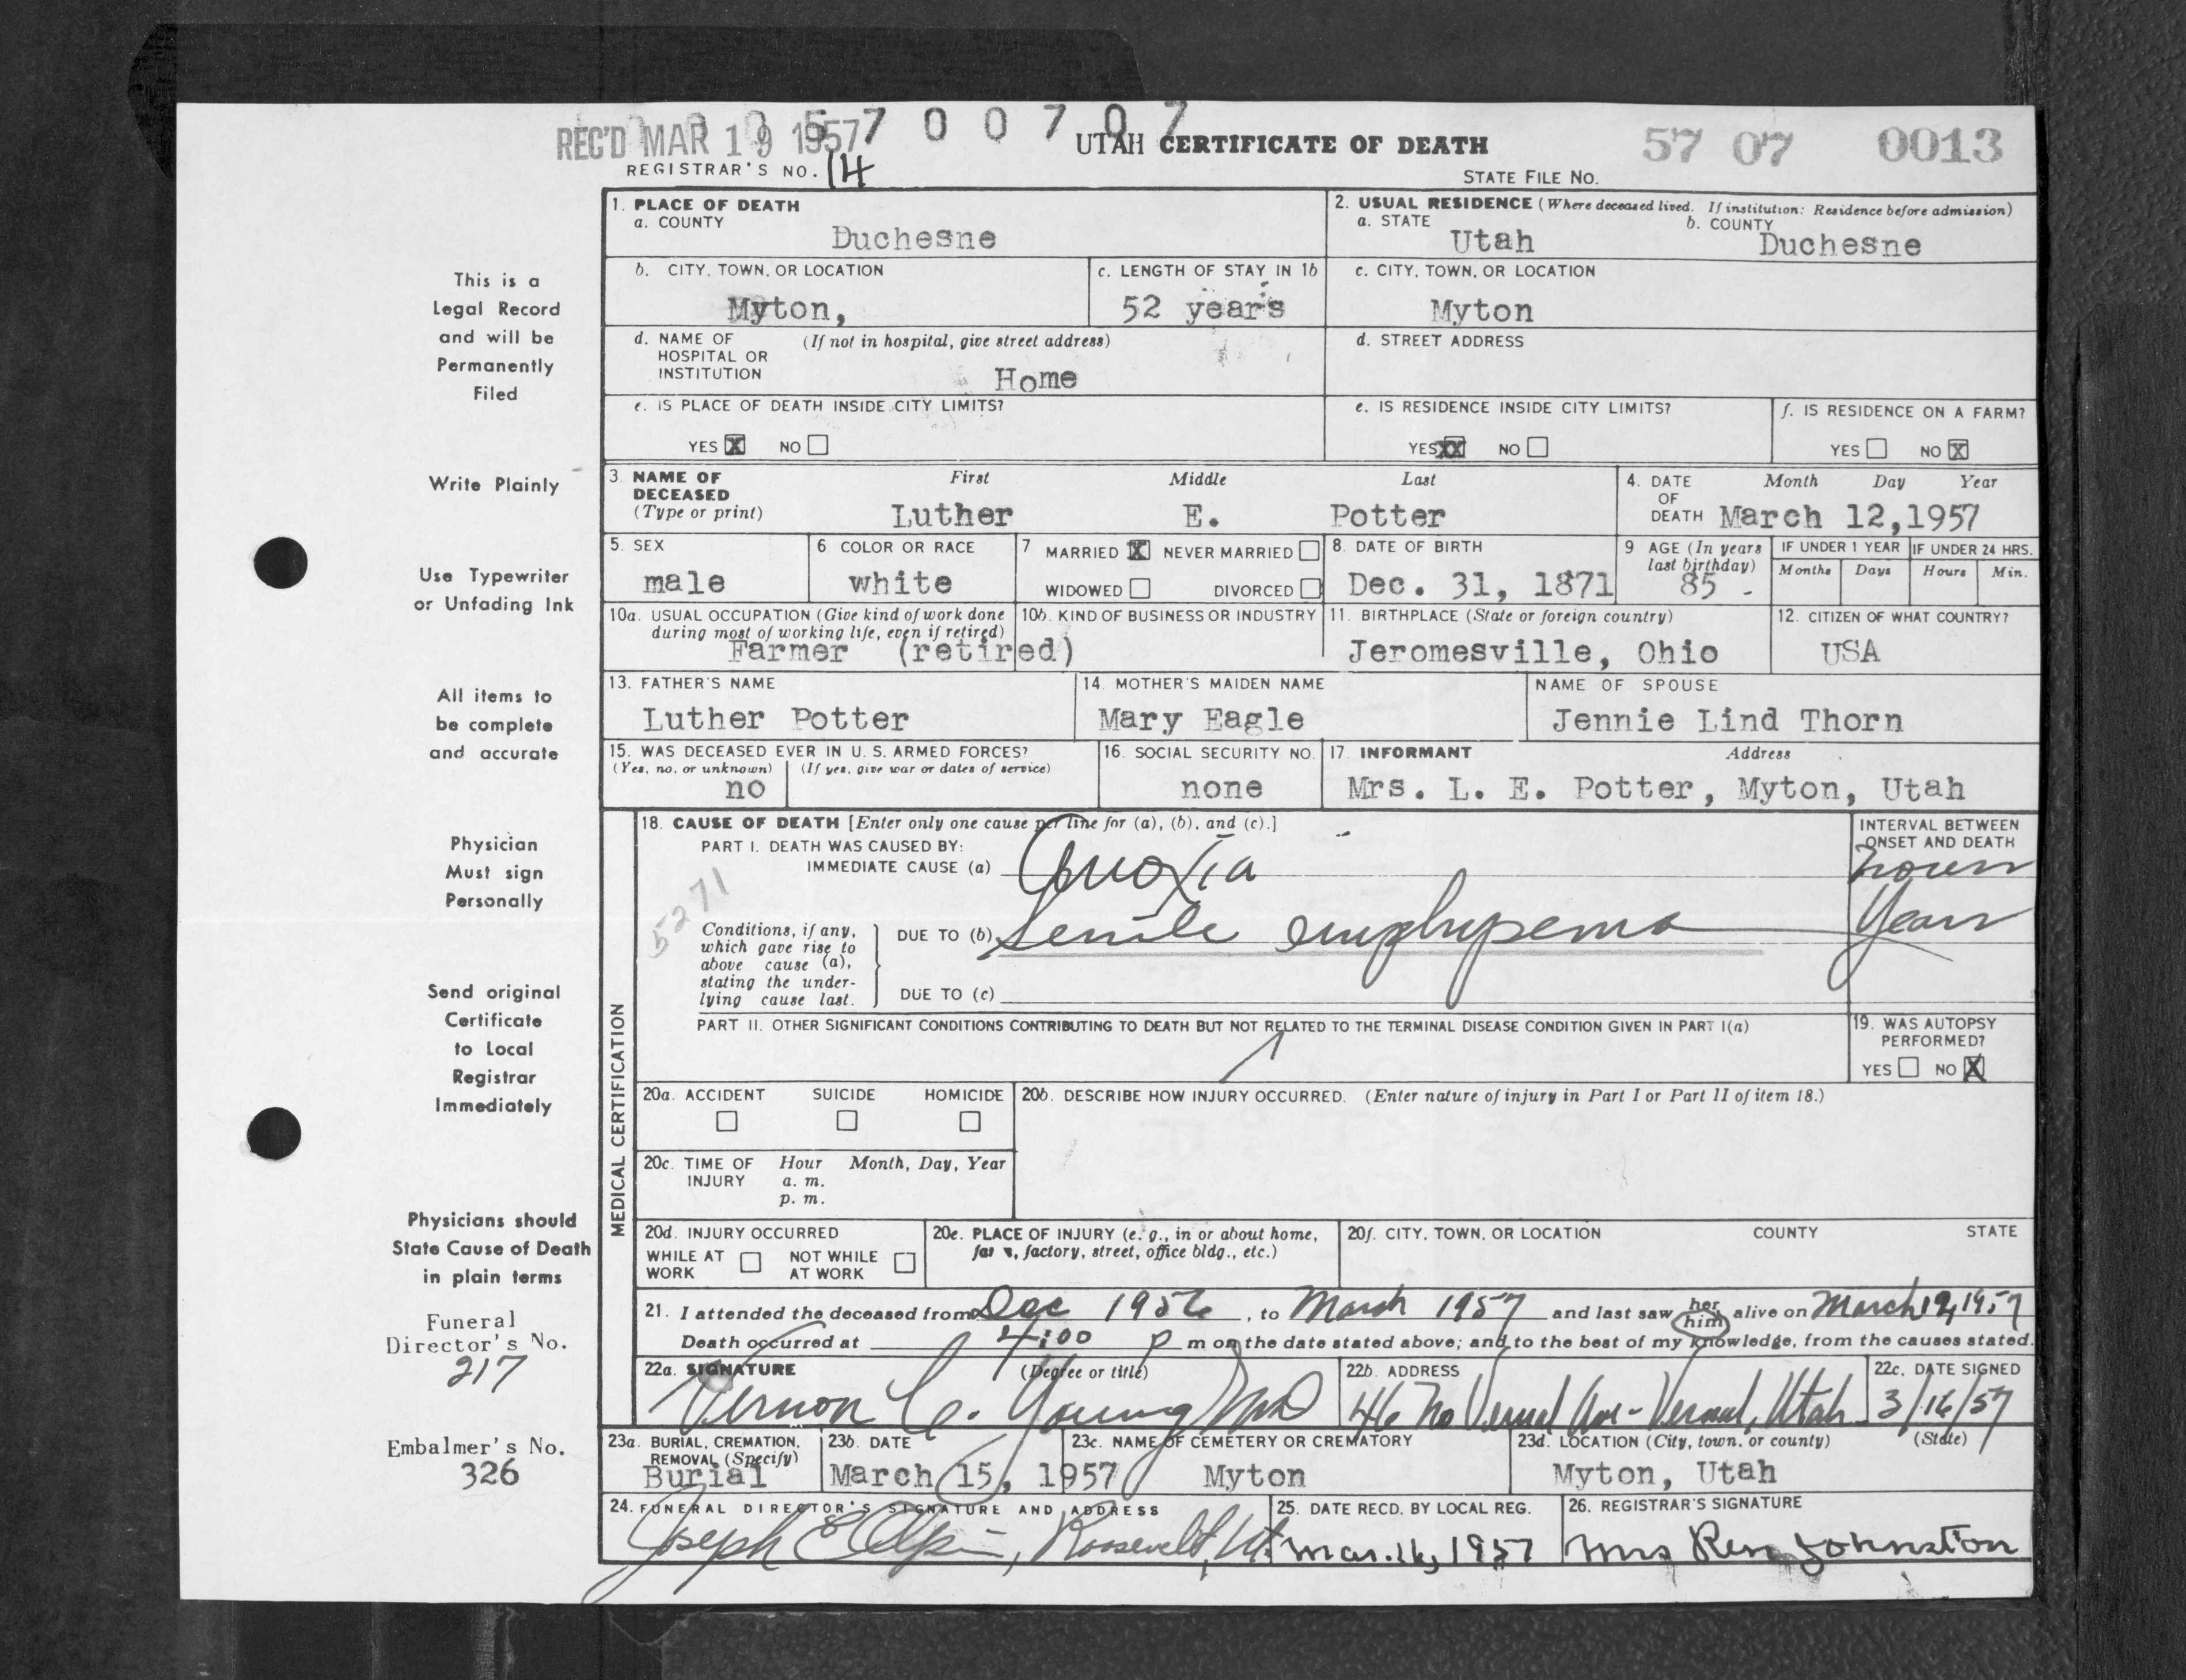 REC'D MAR 19 1957 5700707 UTAH CERTIFICATE OF DEATH 57 07 0013
REGISTRAR'S NO. 14 STATE FILE NO.
1. PLACE OF DEATH
a. COUNTY
Duchesne
2. USUAL RESIDENCE (Where deceased lived. If institution: Residence before admission)
a. STATE b. COUNTY
Utah Duchesne
b. CITY, TOWN, OR LOCATION
Myton,
c. LENGTH OF STAY IN 1b
52 years
c. CITY, TOWN, OR LOCATION
Myton
d. NAME OF (If not in hospital, give street address)
HOSPITAL OR
INSTITUTION
Home
d. STREET ADDRESS
e. IS PLACE OF DEATH INSIDE CITY LIMITS?
YES X NO
e. IS RESIDENCE INSIDE CITY LIMITS?
YES XX NO
f. IS RESIDENCE ON A FARM?
YES NO X
3. NAME OF First Middle Last
DECEASED
(Type or print) Luther E. Potter
4. DATE Month Day Year
OF
DEATH March 12,1957
5. SEX
male
6. COLOR OR RACE
white
7. MARRIED X NEVER MARRIED
WIDOWED DIVORCED
8. DATE OF BIRTH
Dec. 31, 1871
9. AGE (In years
last birthday)
85
IF UNDER 1 YEAR
Months Days
IF UNDER 24 HRS.
Hours Min.
10a. USUAL OCCUPATION (Give kind of work done
during most of working life, even if retired)
Farmer (retired)
10b. KIND OF BUSINESS OR INDUSTRY
11. BIRTHPLACE (State or foreign country)
Jeromesville, Ohio
12. CITIZEN OF WHAT COUNTRY?
USA
13. FATHER'S NAME
Luther Potter
14. MOTHER'S MAIDEN NAME
Mary Eagle
NAME OF SPOUSE
Jennie Lind Thorn
15. WAS DECEASED EVER IN U. S. ARMED FORCES?
(Yes, no, or unknown) (If yes, give war or dates of service)
no
16. SOCIAL SECURITY NO.
none
17. INFORMANT Address
Mrs. L. E. Potter, Myton, Utah
MEDICAL CERTIFICATION
18. CAUSE OF DEATH [Enter only one cause per line for (a), (b), and (c).]
PART I. DEATH WAS CAUSED BY:
IMMEDIATE CAUSE (a) Anoxia
INTERVAL BETWEEN
ONSET AND DEATH
hours
5271
Conditions, if any,
which gave rise to
above cause (a),
stating the under-
lying cause last.
DUE TO (b) Senile emphysema Years
DUE TO (c)
PART II. OTHER SIGNIFICANT CONDITIONS CONTRIBUTING TO DEATH BUT NOT RELATED TO THE TERMINAL DISEASE CONDITION GIVEN IN PART I(a)
19. WAS AUTOPSY
PERFORMED?
YES NO X
20a. ACCIDENT SUICIDE HOMICIDE
20b. DESCRIBE HOW INJURY OCCURRED. (Enter nature of injury in Part I or Part II of item 18.)
20c. TIME OF Hour Month, Day, Year
INJURY a. m.
p. m.
20d. INJURY OCCURRED
WHILE AT NOT WHILE
WORK AT WORK
20e. PLACE OF INJURY (e. g., in or about home,
farm, factory, street, office bldg., etc.)
20f. CITY, TOWN, OR LOCATION COUNTY STATE
21. I attended the deceased from Dec 1956, to March 1957 and last saw her him alive on March 12, 1957
Death occurred at 4:00 p m on the date stated above; and to the best of my knowledge, from the causes stated.
22a. SIGNATURE (Degree or title)
Vernon C. Young MD
22b. ADDRESS
46 No Vernal Ave - Vernal, Utah
22c. DATE SIGNED
3/16/57
23a. BURIAL, CREMATION,
REMOVAL (Specify)
Burial
23b. DATE
March 15, 1957
23c. NAME OF CEMETERY OR CREMATORY
Myton
23d. LOCATION (City, town, or county) (State)
Myton, Utah
24. FUNERAL DIRECTOR'S SIGNATURE AND ADDRESS
Joseph E , Roosevelt, Ut.
25. DATE RECD. BY LOCAL REG.
Mar. 16, 1957
26. REGISTRAR'S SIGNATURE
Mrs Ren Johnston
This is a
Legal Record
and will be
Permanently
Filed
Write Plainly
Use Typewriter
or Unfading Ink
All items to
be complete
and accurate
Physician
Must sign
Personally
Send original
Certificate
to Local
Registrar
Immediately
Physicians should
State Cause of Death
in plain terms
Funeral
Director's No.
217
Embalmer's No.
326